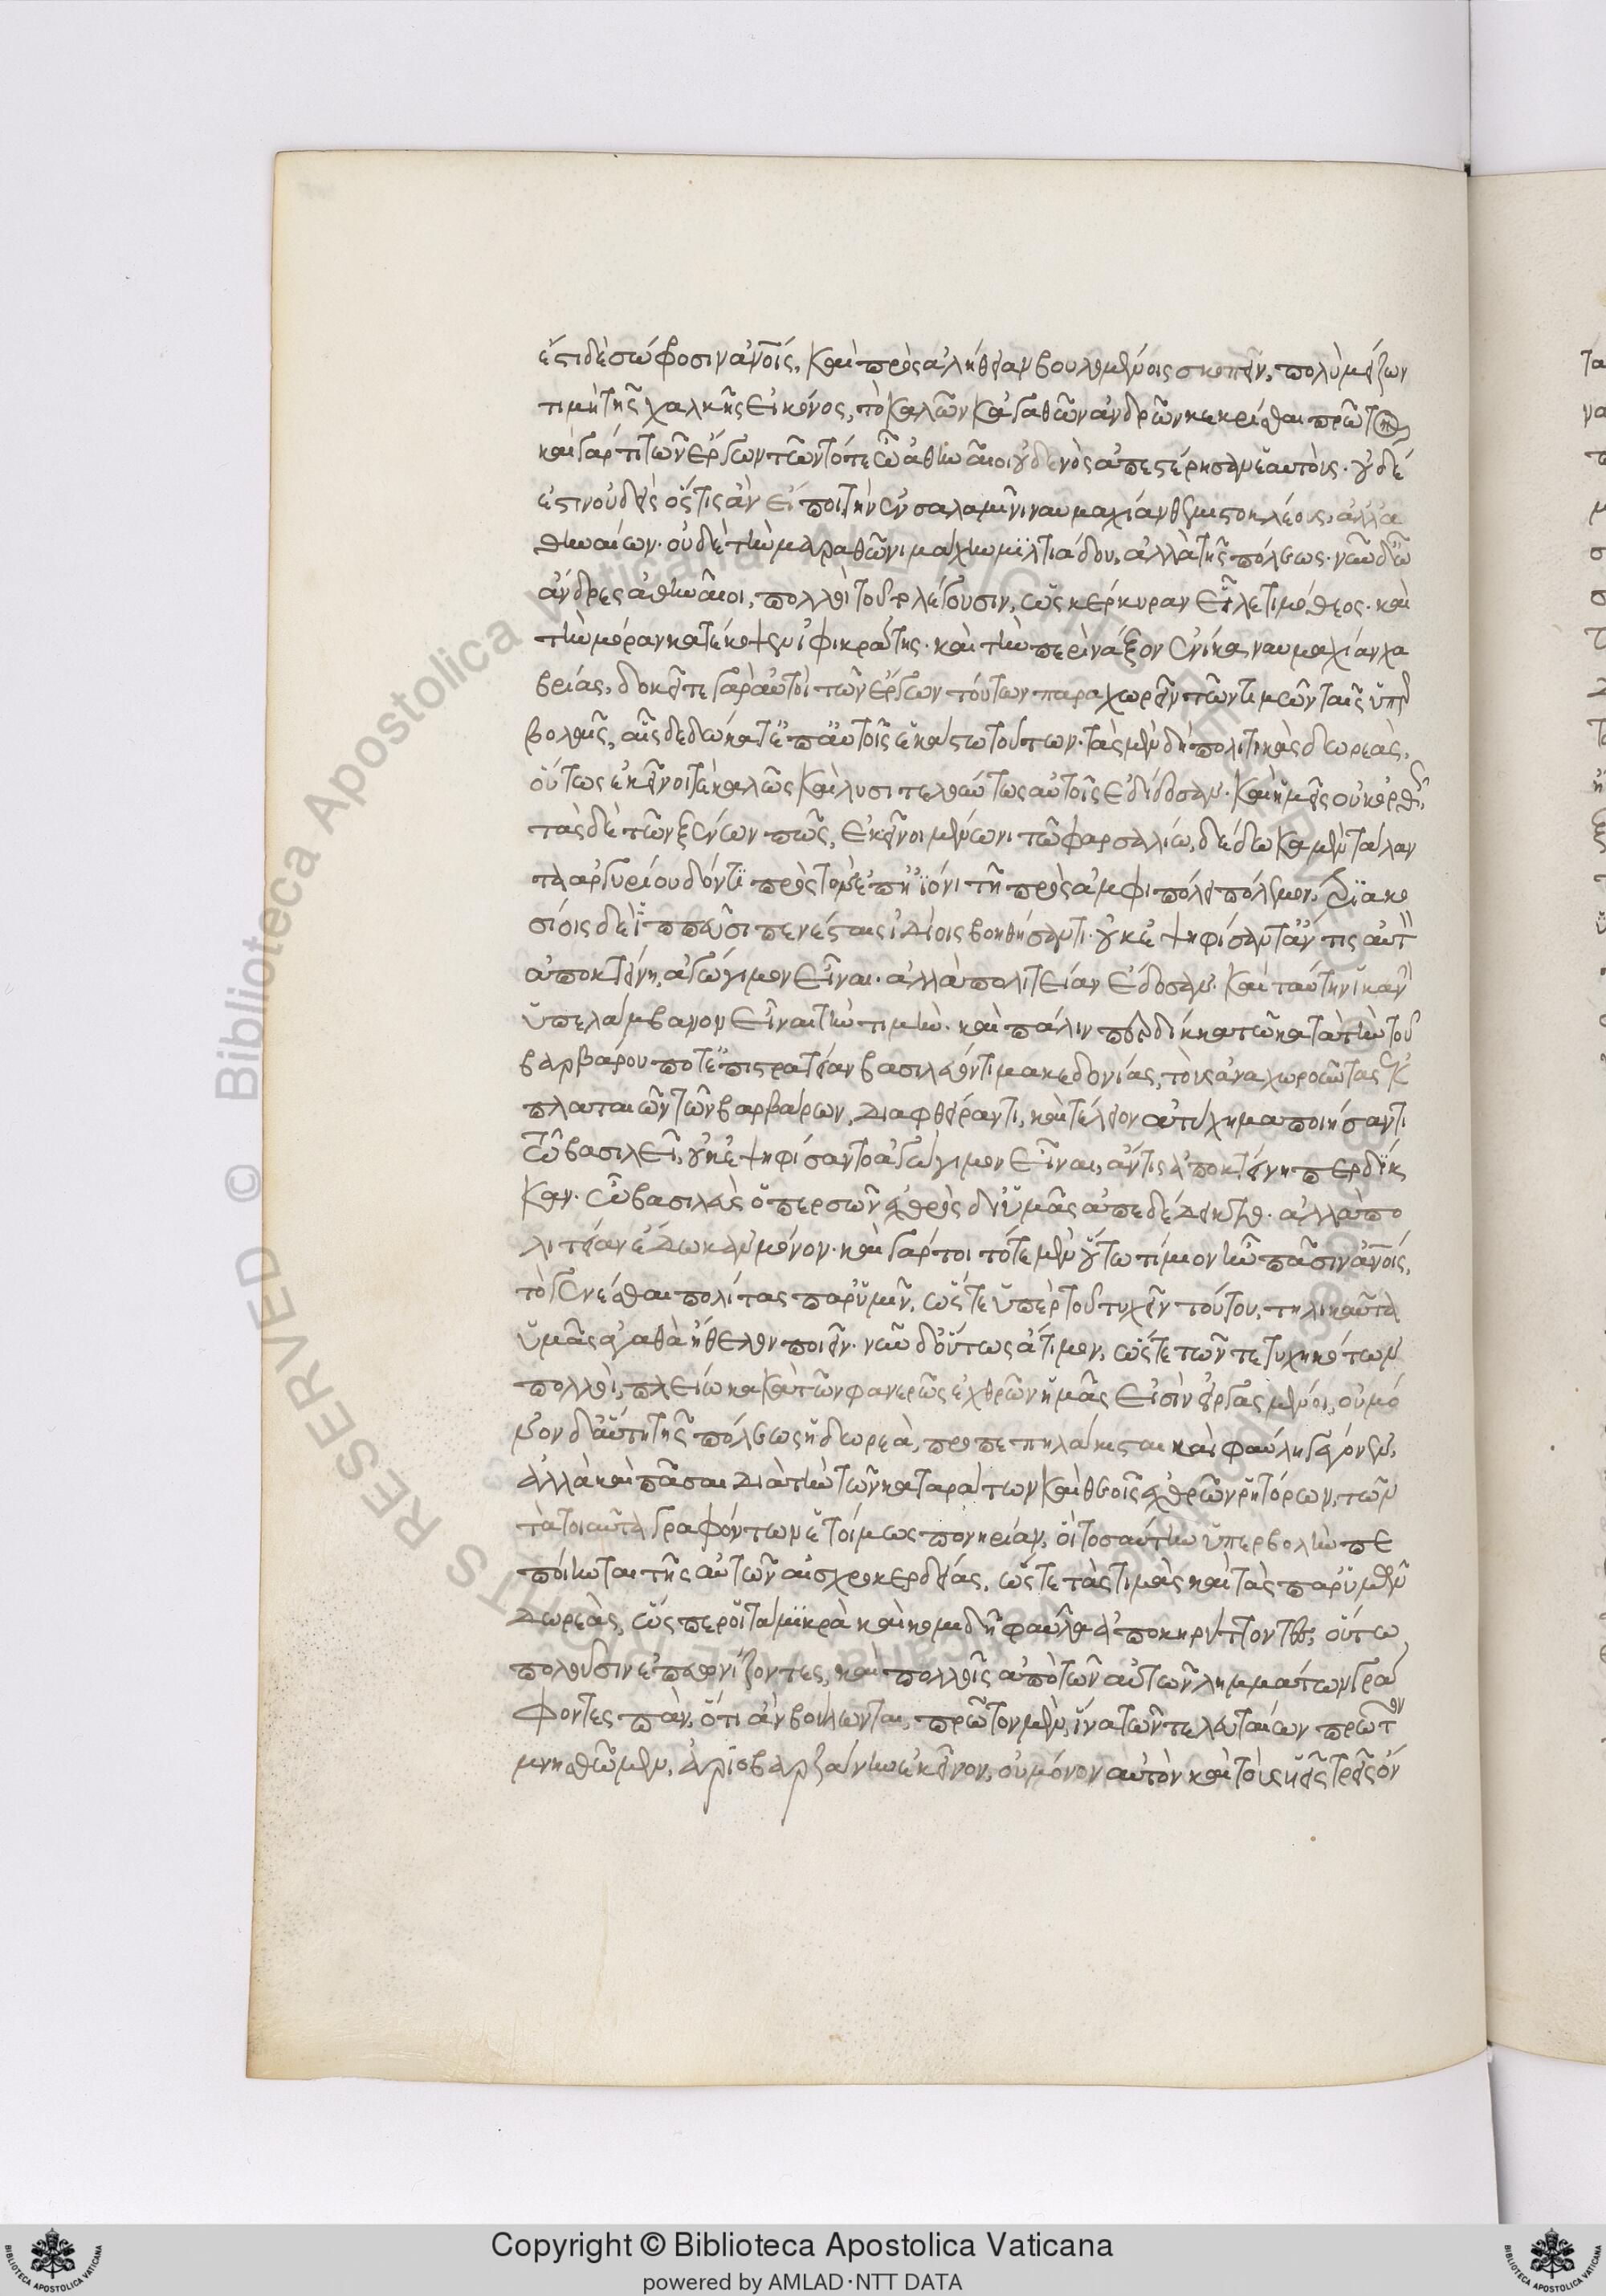 ἔστι δὲ σώφροσιν ἀνοῖς, καὶ πρὸς ἀλήθειαν βουλομένοις σκοπεῖν, πολὺ μείζων
τιμὴ τῆς χαλκῆς εἰκόνος, τὸ καλῶν κἀγαθῶν ἀνδρῶν κεκρίσθαι πρώτους
καὶ γάρ τι τῶν ἔργων τῶν τότε ὦ ἀθηναῖοι οὐδενὸς ἀπεστέρησαν ἑαυτοὺς. οὐδέ
ἐστιν οὐδεὶς ὅστις ἂν εἴποι τὴν ἐν σαλαμῖνι ναυμαχίαν θεμιστοκλέους, ἀλλ' ἀ
θηναίων. οὐδὲ τὴν μαραθῶνι μάχην μϊλτιάδου, ἀλλὰ τῆς πόλεως. νῦν δ' ὦ
ἄνδρες ἀθηναῖοι, πολλοὶ τοῦτο λέγουσιν, ὡς κέρκυραν εἷλε τιμόθεος. καὶ
τὴν μόραν κατέκοψεν ἰφικράτης. καὶ τὴν περὶ νάξον ἐνίκα ναυμαχίαν χα
βρίας, δοκεῖτε γὰρ αὐτοὶ τῶν ἔργων τούτων παραχωρεῖν τῶν τιμῶν ταῖς ὑπερ
βολαῖς, αἷς δεδώκατε ἐπ' αὐτοῖς ἑκάστω τούτων. τὰς μὲν δὴ πολιτικὰς δωρεὰς,
οὕτως ἐκεῖνοί τε καλῶς καὶ λυσιτελούντως αὐτοῖς ἐδίδοσαν. καὶ ἡμεῖς οὐκ ὀρθῶς
τὰς δὲ τῶν ξένων πῶς, ἐκεῖνοι μένωνι τῶ φαρσαλίω, δώδεκα μὲν τάλαν
τα ἀργυρίου δόντϊ πρὸς τὸν ἐπ' ἠϊόνι τῆ πρὸς ἀμφιπόλει πόλεμον, διακο
σίοις δὲ ἱππεῦσι πενέσταις ἰδίοις βοηθήσαντι. οὐκ ἐψηφίσαντ' ἄν τις αὐτὸν
ἀποκτείνη, ἀγώγιμον εἶναι. ἀλλὰ πολιτείαν ἔδοσαν. καὶ ταύτην ἱκανὴν
ὑπελάμβανον εἶναι τὴν τιμὴν. καὶ πάλιν περδίκκα τῶ κατὰ τὴν τοῦ
βαρβάρου ποτ' ἐπιστρατείαν βασιλεύοντι μακεδονίας, τοὺς ἀναχωροῦντας ἐκ
πλαταιῶν τῶν βαρβάρων, διαφθείραντι, καὶ τέλειον ἀτύχημα ποιήσαντι
τῶ βασιλεῖ, οὐκ ἐψηφίσαντο ἀγώγιμον εἶναι, ἄν τις ἀποκτείνη περδίκ
καν. ὧ βασιλεὺς ὁ περσῶν ἐχθρὸς δι' ὑμᾶς ἀπεδέδεικτο. ἀλλὰ πο
λιτείαν ἔδωκαν μόνον. καὶ γάρ τοι τότε μὲν οὕτω τίμιον ἦν πᾶσιν ἀνοῖς,
τὸ γενέσθαι πολίτας παρ' ὑμῖν, ὥστε ὑπὲρ τοῦ τυχεῖν τούτου, τηλικαῦτα
ὑμᾶς ἀγαθὰ ἤθελον ποιεῖν. νῦν δ' οὕτως ἄτιμον, ὥστε τῶν τετυχηκότων
πολλοὶ, πλείω κακὰ τῶν φανερῶς ἐχθρῶν ἡμᾶς εἰσὶν εἰργασμένοι, οὐ μό
νον δ' αὕτη τῆς πόλεως ἡ δωρεὰ, προπεπηλάκισται καὶ φαύλη γέγονεν,
ἀλλὰ καὶ πᾶσαι διὰ τὴν τῶν καταράτων καὶ θεοῖς ἐχθρῶν ῥητόρων, τῶν
τὰ τοιαῦτα γραφόντων ἑτοίμως πονηρίαν, οἳ τοσαύτην ὑπερβολὴν πε
ποίηνται τῆς αὑτῶν αἰσχροκερδείας, ὥστε τὰς τιμὰς καὶ τὰς παρ' ὑμῶν
δωρεὰς, ὥσπερ οἱ τὰ μϊκρὰ καὶ κομιδῆ φαῦλα ἀποκηρύττοντες, οὕτω
πωλοῦσιν ἐπευωνίζοντες, καὶ πολλοῖς ἀπὸ τῶν αὐτῶν λημμάτων γρά
φοντες πὰν, ὅτι ἂν βούλωνται, πρῶτον μὲν, ἵνα τῶν τελευταίων πρῶτον
μνησθῶμεν, ἀριοβαρζάνην ἐκεῖνον, οὐ μόνον αὐτὸν καὶ τοὺς υἱεῖς τρεῖς ὄν